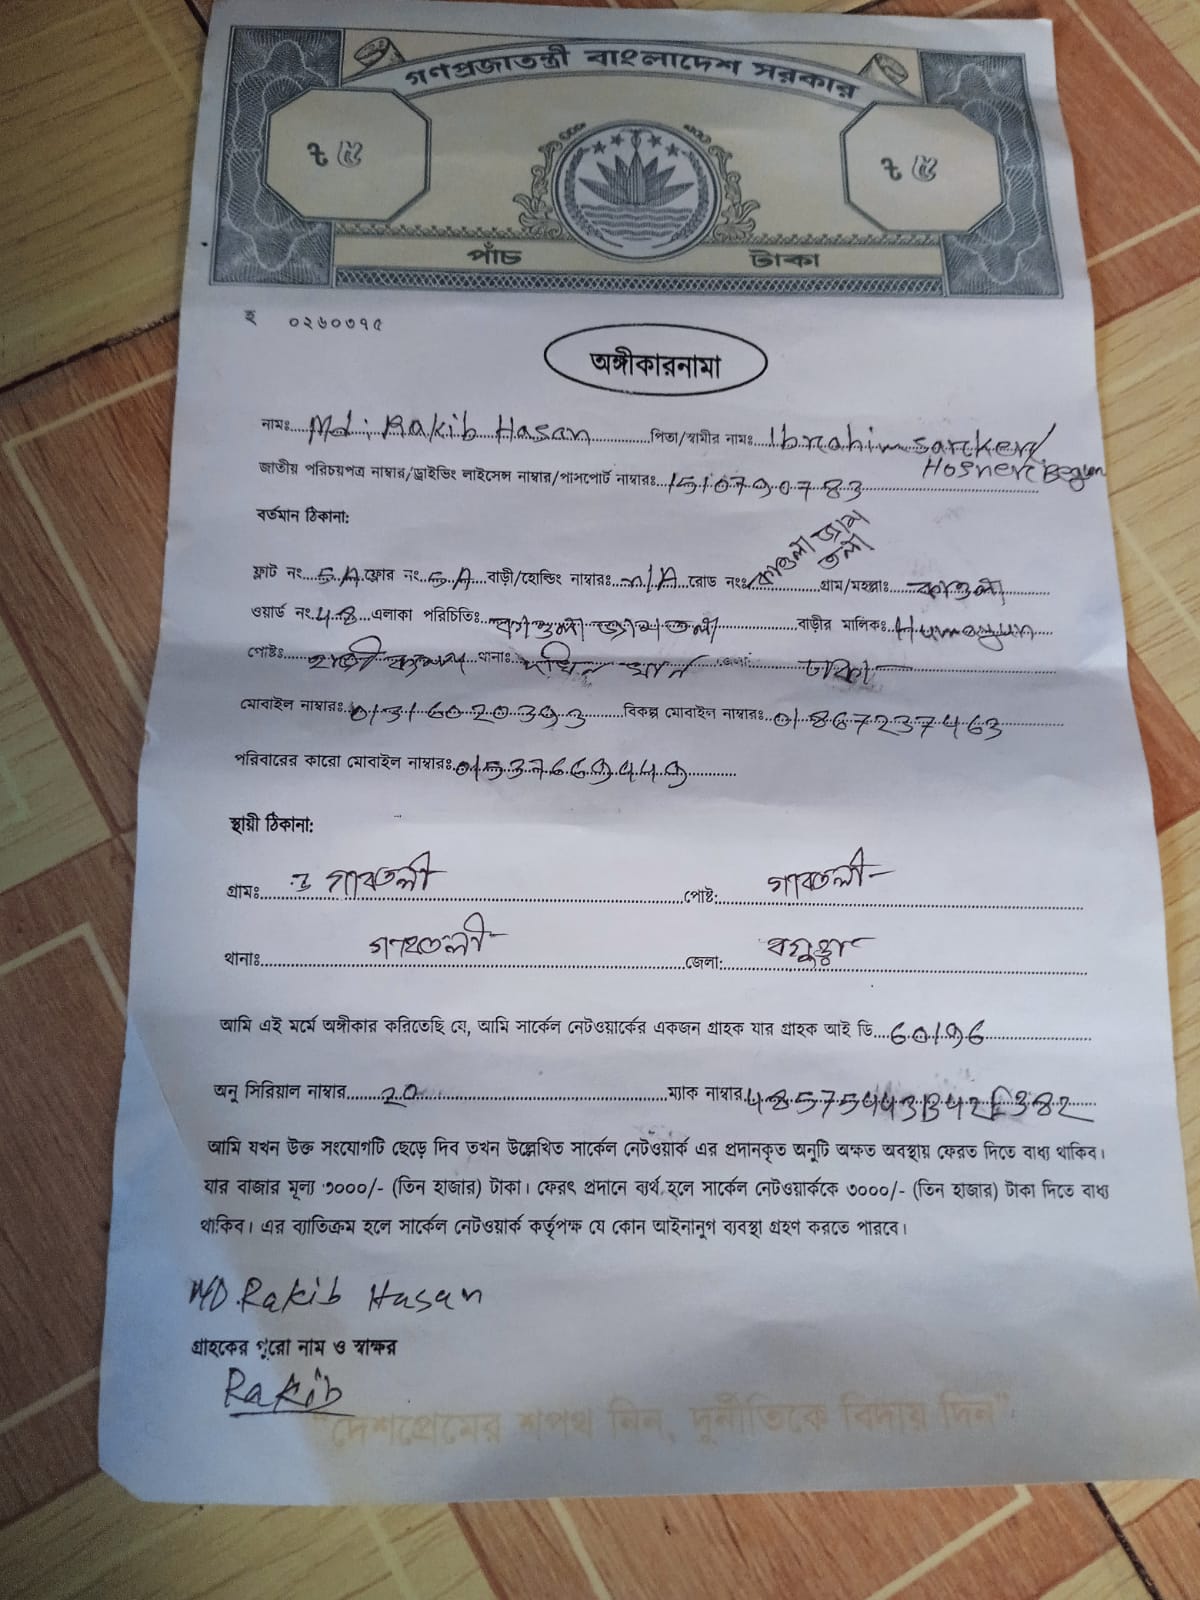 গণপ্রজাতন্ত্রী বাংলাদেশ সরকার
৳ ৫ ৳ ৫
পাঁচ টাকা
হ ০২৬০৩৭৫
অঙ্গীকারনামা
নামঃ Md: Rakib Hasan পিতা/স্বামীর নামঃ Ibrahim sarker/
Hosner Begum
জাতীয় পরিচয়পত্র নাম্বার/ড্রাইভিং লাইসেন্স নাম্বার/পাসপোর্ট নাম্বারঃ 1510790783
বর্তমান ঠিকানা:
ফ্লাট নং 5A ফ্লোর নং 5A বাড়ী/হোল্ডিং নাম্বারঃ n/A রোড নংঃ কাওলা জাম তলা গ্রাম/মহল্লাঃ কাওলা
ওয়ার্ড নং 48 এলাকা পরিচিতিঃ জামতলা বাড়ীর মালিকঃ Humayun
পোষ্টঃ থানাঃ দক্ষিন খান জেলা: ঢাকা
মোবাইল নাম্বারঃ 01316020393 বিকল্প মোবাইল নাম্বারঃ 01867237463
পরিবারের কারো মোবাইল নাম্বারঃ 01537669449
স্থায়ী ঠিকানা:
গ্রামঃ গাবতলী পোষ্ট: গাবতলী
থানাঃ গাবতলী জেলা: বগুড়া
আমি এই মর্মে অঙ্গীকার করিতেছি যে, আমি সার্কেল নেটওয়ার্কের একজন গ্রাহক যার গ্রাহক আই ডি 60196
অনু সিরিয়াল নাম্বার 20 ম্যাক নাম্বার
আমি যখন উক্ত সংযোগটি ছেড়ে দিব তখন উল্লেখিত সার্কেল নেটওয়ার্ক এর প্রদানকৃত অনুটি অক্ষত অবস্থায় ফেরত দিতে বাধ্য থাকিব।
যার বাজার মূল্য ৩০০০/- (তিন হাজার) টাকা। ফেরৎ প্রদানে ব্যর্থ হলে সার্কেল নেটওয়ার্ককে ৩০০০/- (তিন হাজার) টাকা দিতে বাধ্য
থাকিব। এর ব্যতিক্রম হলে সার্কেল নেটওয়ার্ক কর্তৃপক্ষ যে কোন আইনানুগ ব্যবস্থা গ্রহণ করতে পারবে।
MD. Rakib Hasan
গ্রাহকের পুরো নাম ও স্বাক্ষর
Rakib
"দেশপ্রেমের শপথ নিন, দুর্নীতিকে বিদায় দিন"